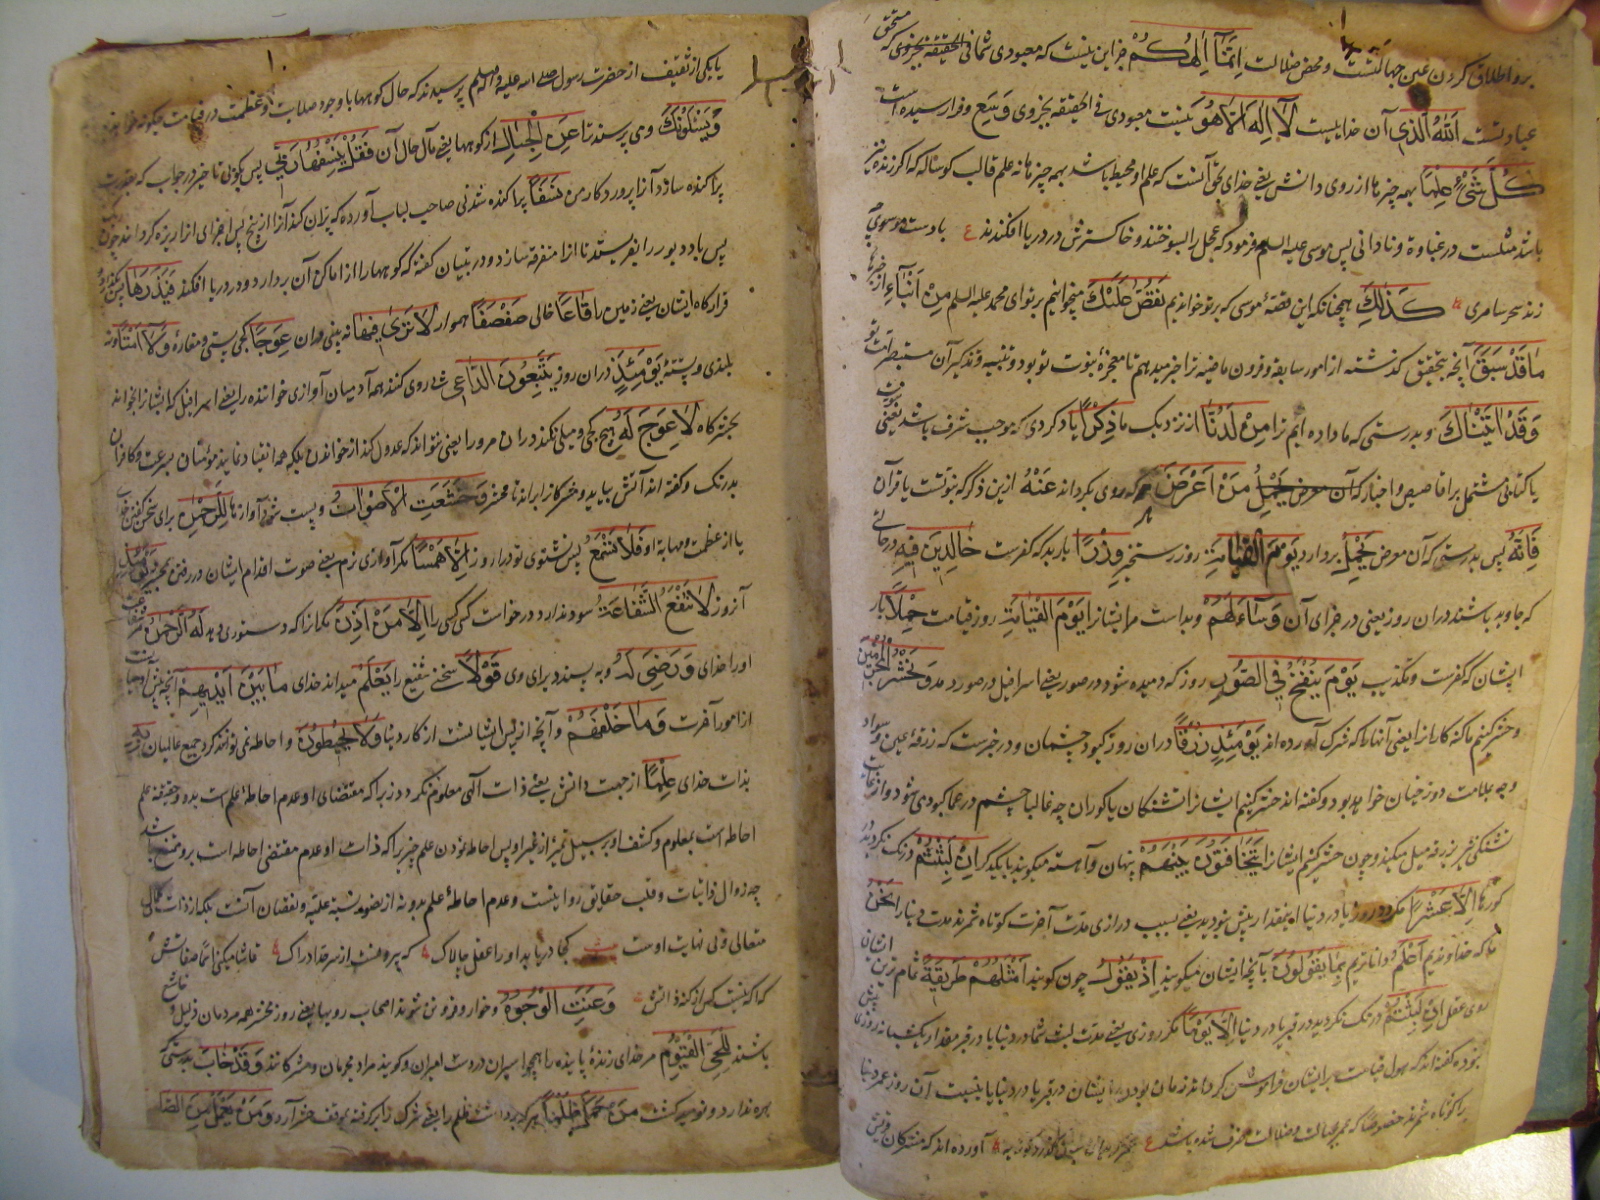 برو اطلاق کردن عین جهالتست و محض ضلالت اِنَّمَا اِلٰهُکُمْ جز این نیست که معبودی شما فی الحقیقه بجزوی که مستحق
عبادتست اَللّٰهُ الَّذِی آن خداییست لَا اِلٰهَ اِلَّا هُوَ نیست معبودی فی الحقیقه بجزوی وَسِعَ و فرا رسیده است
کُلَّ شَیْءٍ عِلْمًا بهمه چیزها از روی دانش یعنی خدای بحق آنست که علم او محیط باشد بهمه چیزها نه علم قالب کوساله که اگر زنده نیز
باشد مثلست در غباوة و نادانی پس موسی علیه السلم فرمود که عجل را بسوختند و خاکسترش در دریا افکندند ع با دست موسوی
زند سحر سامری کَذٰلِكَ همچنانکه این قصهٔ موسی که بر تو خواندیم نَقُصُّ عَلَیْكَ میخوانیم بر تو ای محمد علیه السلم مِنْ اَنْبَاءِ از خبرها
مَا قَدْ سَبَقَ آنچه بتحقیق گذشته از امور سابقه و قرون ماضیه ترا خبر میدهم تا معجزهٔ نبوت تو بود و تنبیه و تذکیر آن مستبصران
وَقَدْ اٰتَیْنَاكَ و بدرستی که ما داده ایم ترا مِنْ لَدُنَّا از نزدیک ما ذِکْرًا یاد کردی که موجب شرف باشد یعنی نبوت
یا کتابی مشتمل بر اقاصیص و اخبار که آن معرض یَحْمِلُ مَنْ اَعْرَضَ هر که روی بگرداند عَنْهُ ازین ذکر که نبوتست یا قرآن
فَاِنَّهُ پس بدرستی که آن معرض یَحْمِلُ بردارد یَوْمَ الْقِیَامَةِ روز رستخیز وِزْرًا بار بد که کفرست خَالِدِینَ فِیهِ در حالتی
که جاوید باشند در آن روز یعنی در جزای آن وَسَاءَ لَهُمْ و بد است مر ایشانرا یَوْمَ الْقِیَامَةِ روز قیامت حِمْلًا بار
ایشان که کفرست و تکذیب یَوْمَ یُنْفَخُ فِی الصُّورِ روز که دمیده شود در صور یعنی اسرافیل در صور دمد وَنَحْشُرُ الْمُجْرِمِینَ
و حشر کنیم ما گنه کارانرا یعنی آنها را که شرک آورده اند یَوْمَئِذٍ زُرْقًا در آن روز کبود چشمان و در خبرست که زرقهٔ عین و سواد
وجه علامت دوزخیان خواهد بود و گفته اند حشر کنیم ایشانرا تشنگان یا کوران چه غالبا چشم در عما کبودی شود و از غایت
تشنگی نیز بزرقه میل میکند و چون حشر کنیم ایشانرا یَتَخَافَتُونَ بَیْنَهُمْ پنهان و آهسته میگویند با یکدیگر اِنْ لَبِثْتُمْ درنگ نکردید در
گورها اِلَّا عَشْرًا مگر ده روز یا در دنیا اینمقدار بیش نبودید یعنی بسبب درازی مدت آخرت کوتاه شمرند مدت دنیا را نَحْنُ
ما که خداوندیم اَعْلَمُ داناتریم بِمَا یَقُولُونَ بآنچه ایشان میگویند اِذْ یَقُولُ چون گوید اَمْثَلُهُمْ طَرِیقَةً تمام ترین ایشان
روی عقل اِنْ لَبِثْتُمْ درنگ نکردید در قبر یا در دنیا اِلَّا یَوْمًا مگر روزی یعنی مدت لبث شما در دنیا یا در قبر مقدار یکشبانه روزی بیش
نبوده گفته اند که هول قیامت بر ایشان فراموش گرداند زمان بودن ایشان در قبر یا در دنیا یا بنسبت آن روز عمر دنیا
را کوتاه شمرند خصوصا که بجهالت و ضلالت صرف شده باشد ع آورده اند که مشرکان قریش
یا یکی از ثقیف از حضرت رسول صلی الله علیه و اله وسلم پرسیدند که حال کوهها با وجود صلابت و عظمت در قیامت چگونه خواهد بود
وَیَسْئَلُونَكَ و می پرسند ترا عَنِ الْجِبَالِ از کوهها یعنی مآل حال آن فَقُلْ یَنْسِفُهَا رَبِّی پس بگو بی تاخیر در جواب که بقدرت
پراکنده سازد آنرا پروردگار من نَسْفًا پراکنده شدنی صاحب لباب آورده که پران کند آنرا از بیخ پس اجزای آنرا ریزه گرداند چون
پس باد دبور را بفرستد تا آنرا متفرقه سازد و در تبیان گفته که کوهها را از اماکن آن بردارد و در دریا افکند فَیَذَرُهَا پس بگذارد
قرارگاه ایشان یعنی زمین را قَاعًا خالی صَفْصَفًا هموار لَا تَرٰی فِیهَا نه بینی در آن عِوَجًا کجی پستی و مغاره وَلَا اَمْتًا و نه
بلندی و پشته یَوْمَئِذٍ در آن روز یَتَّبِعُونَ الدَّاعِیَ پیروی کنند همه آدمیان آوازی خواننده را یعنی اسرافیل که ایشانرا بخواند
بحشرگاه لَا عِوَجَ لَهُ هیچ کجی و میلی نکند در آن مرو را یعنی نتواند که عدول کند از خواندن بلکه همه انقیاد نمایند مومنان بسرعت و کافران
بدرنگ و گفته اند آتش بیاید و حشر کانرا براند تا محشر وَخَشَعَتِ الْاَصْوَاتُ و پست شود آوازها لِلرَّحْمٰنِ برای سخن گفتن
یا از عظمت و مهابهٔ او فَلَا تَسْمَعُ پس نشنوی تو در آن روز اِلَّا هَمْسًا مگر آوازی نرم یعنی صوت اقدام ایشان در رفتن بمحشر یَوْمَئِذٍ
آنروز لَا تَنْفَعُ الشَّفَاعَةُ سود ندارد درخواست کسی کسی را اِلَّا مَنْ اَذِنَ مگر آنرا که دستوری دهد لَهُ الرَّحْمٰنُ
او را خدای وَرَضِیَ لَهُ و به پسندد برای وی قَوْلًا سخن شفیع را یَعْلَمُ میداند خدای مَا بَیْنَ اَیْدِیهِمْ آنچه پیش آدمیانست
از امور آخرت وَمَا خَلْفَهُمْ و آنچه از پس ایشانست از کار دنیا وَلَا یُحِیطُونَ و احاطه نمی توانند کرد جمیع عالمیان بِهِ
بذات خدای عِلْمًا از جهت دانش یعنی ذات الهی معلوم نگردد زیرا که مقتضای او عدم احاطهٔ علم است بدو و حقیقهٔ علم
احاطه است بمعلوم و کشف او بر سبیل تمیز از غیر او پس احاطه نمودن علم چیزیرا که ذات او عدم مقتضی احاطه است برو ممتنع باشد
چه زوال ذاتیات و قلب حقایق روا نیست و عدم احاطهٔ علم بدو نه از بضوء نسبة علمیه و نقصان آنست بلکه از ذات کمال
متعالی و بی نهایت اوست کجا دریابد او را عقل چالاک که بیرونست از سرحد ادراک تماشا میکن اسما و صفاتش
که آگه نیست کس از کنه ذاتش وَعَنَتِ الْوُجُوهُ و خوار و فروتن شوند اصحاب رویها یعنی روز محشر همه مردمان ذلیل و خاشع
باشند لِلْحَیِّ الْقَیُّومِ مر خدای زندهٔ پاینده را همچو اسیران در دست امیران و گویند مراد مجرمان و مشرکانند وَقَدْ خَابَ بدرستی که
بهره ندارد و نومید گشت مَنْ حَمَلَ ظُلْمًا هر که برداشت ظلم را یعنی شرک را بر گرفته بموقف حشر آرد وَمَنْ یَعْمَلْ مِنَ الصَّا